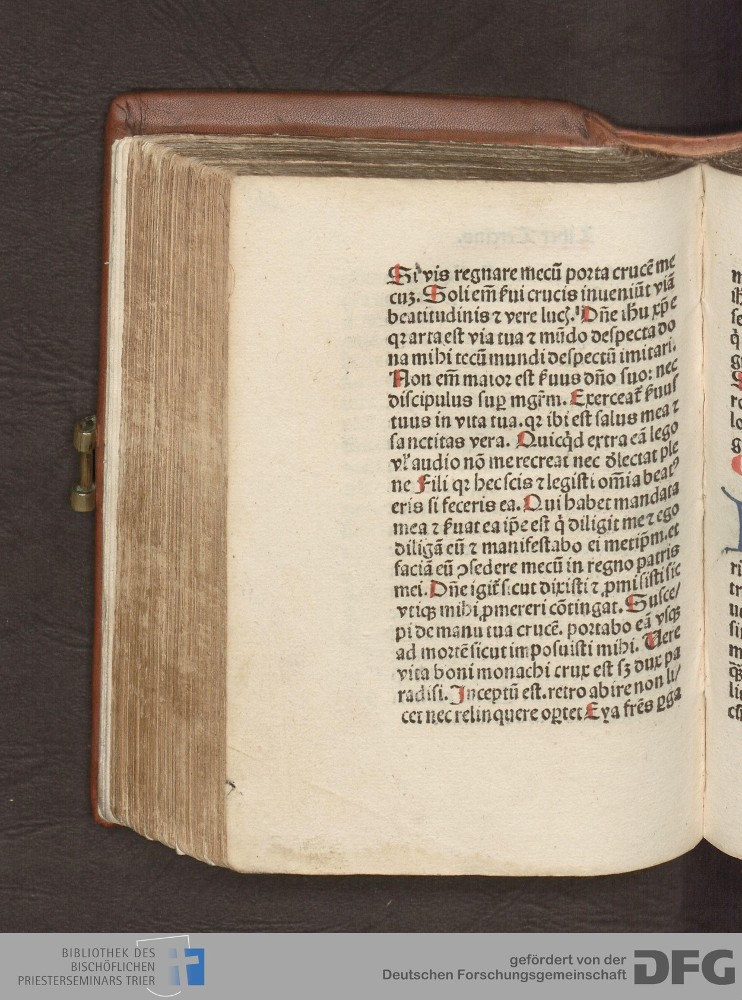 Si vis regnare mecū porta crucē me
cuʒ. Soli em̄ ẜui crucis inueniūt viā
beatitudinis ⁊ vere lucꝭ. Dn̄e ihu xp̄e
qꝛ arta est via tua ⁊ mūdo despecta do
na mihi tecū mundi despectū imitari.
Non em̄ maior est ẜuus dn̄o suo: nec
discipulus suꝑ mgr̄m. Exerceat̄ ẜuus
tuus in vita tua. qꝛ ibi est salus mea ⁊
sanctitas vera. Quicq̇d extra eā lego
vl̓ audio nō me recreat nec d̓lectat ple
ne Fili qꝛ hec scis ⁊ legisti om̄ia beatꝰ
eris si feceris ea. Qui habet mandata
mea ⁊ ẜuat ea ip̄e est q̇ diligit me ⁊ ego
diligā eū ⁊ manifestabo ei metip̄m. et
faciā eū ꝯsedere mecū in regno patris
mei. Dn̄e igit̄ sicut dixisti ⁊ ꝓmisisti sic
vtiqꝫ mihi ꝓmereri cōtingat. Susce/
pi de manu tua crucē. portabo eā vsqꝫ
ad mortē sicut imposuisti mihi. Uere
vita boni monachi crux est sʒ dux pa
radisi. Inceptū est. retro abire non li/
cet nec relinquere oꝑtet Eya fr̄es ꝑga
BIBLIOTHEK DES
BISCHÖFLICHEN
PRIESTERSEMINARS TRIER
gefördert von der
Deutschen Forschungsgemeinschaft
DFG